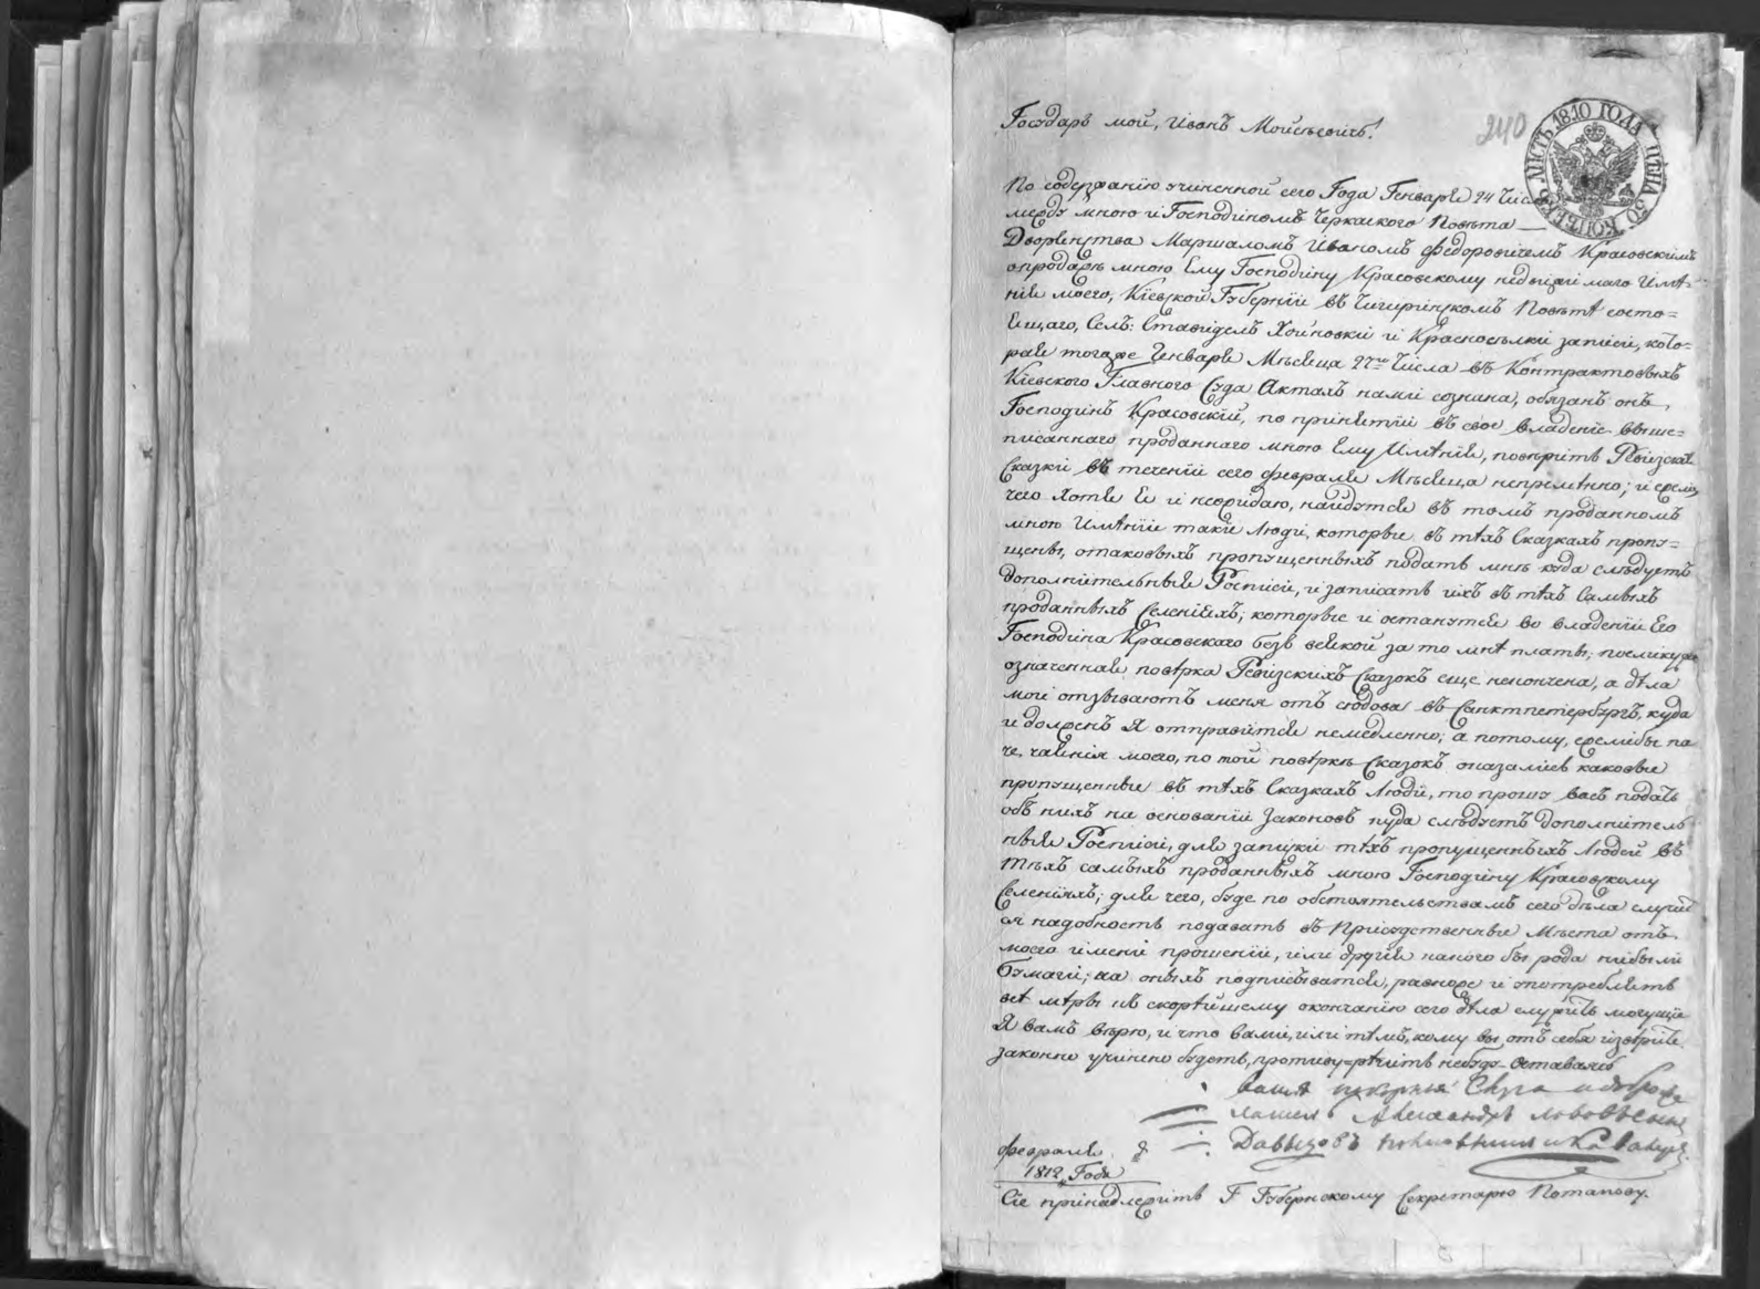 240
ЛИСТЪ 1810 ГОДА ЦѢНА 50 КОПѢЕКЪ
Государь мой, Иванъ Мойсѣевичь!
По содержанію учиненной сего Года Генваря 24 Чис
между мною и Господиномъ Черкаского Повѣта
Дворянства Маршаломъ Иваномъ Федоровичемъ Красовскимъ
опродажѣ мною Ему Господину Красовскому недвижимаго Имѣ-
нія моего, Кіевской Губерніи въ Чигиринскомъ Повѣтѣ состо=
ящаго, Селъ: Ставиделъ Хойновки и Красноселки записи, кото=
рая тогоже Генваря Мѣсяца 27го Числа въ Контрактовыхъ
Кіевского Главного Суда Актахъ нами сознана, обязанъ онъ,
Господинъ Красовскій, по принятіи въ свое владеніе выше=
писаннаго проданнаго мною Ему Имѣнія, повѣрить Ревизскія
Сказки въ теченіи сего февраля Мѣсяца непремѣнно; и ежели,
чего хотя я и неожидаю, найдутся въ томъ проданномъ
мною Имѣніи такіе люди, которые въ тѣхъ Сказкахъ пропу=
щены, отаковыхъ пропущенныхъ подать мнѣ куда слѣдуетъ
дополнительныя Росписи, и записать ихъ въ тѣхъ самыхъ
проданныхъ Селеніяхъ; которые и останутся во владеніи Его
Господина Красовскаго безъ всякой за то мнѣ платы; поеликуже
означенная повѣрка Ревизскихъ Сказокъ еще некончена, а дѣла
мои отзываютъ меня отъ сюдова въ Санктпетербургъ, куда
и долженъ я отправится немедленно; а потому, ежелибы па
че чаянія моего, по той повѣркѣ Сказокъ оказались каковые
пропущенные въ тѣхъ Сказкахъ люди, то прошу васъ подать
объ нихъ на основаніи Законовъ куда слѣдуетъ дополнитель
ныя Росписи, для записки тѣхъ пропущенныхъ людей въ
тѣхъ самыхъ проданныхъ мною Господину Красовскому
Селеніяхъ; для чего, буде по обстоятельствамъ сего дѣла случит
ся надобность подавать въ Присудственные Мѣста отъ
моего имени прошеніи, или другія какого бы рода нибыли
бумаги; на оныхъ подписыватся, равноже и употреблять
всѣ мѣры къ скорѣйшему окончанію сего дѣла служить могущіе
Я вамъ вѣрю, и что вами, или тѣмъ, кому вы отъ себя извѣрите
законно учинено будетъ, противурѣчить небуду. Оставаясь
Александръ Львовъ сынъ
Давыдовъ
февраля
1812 Года
Сіе принадлежитъ Г Губернскому Секретарю Потапову.